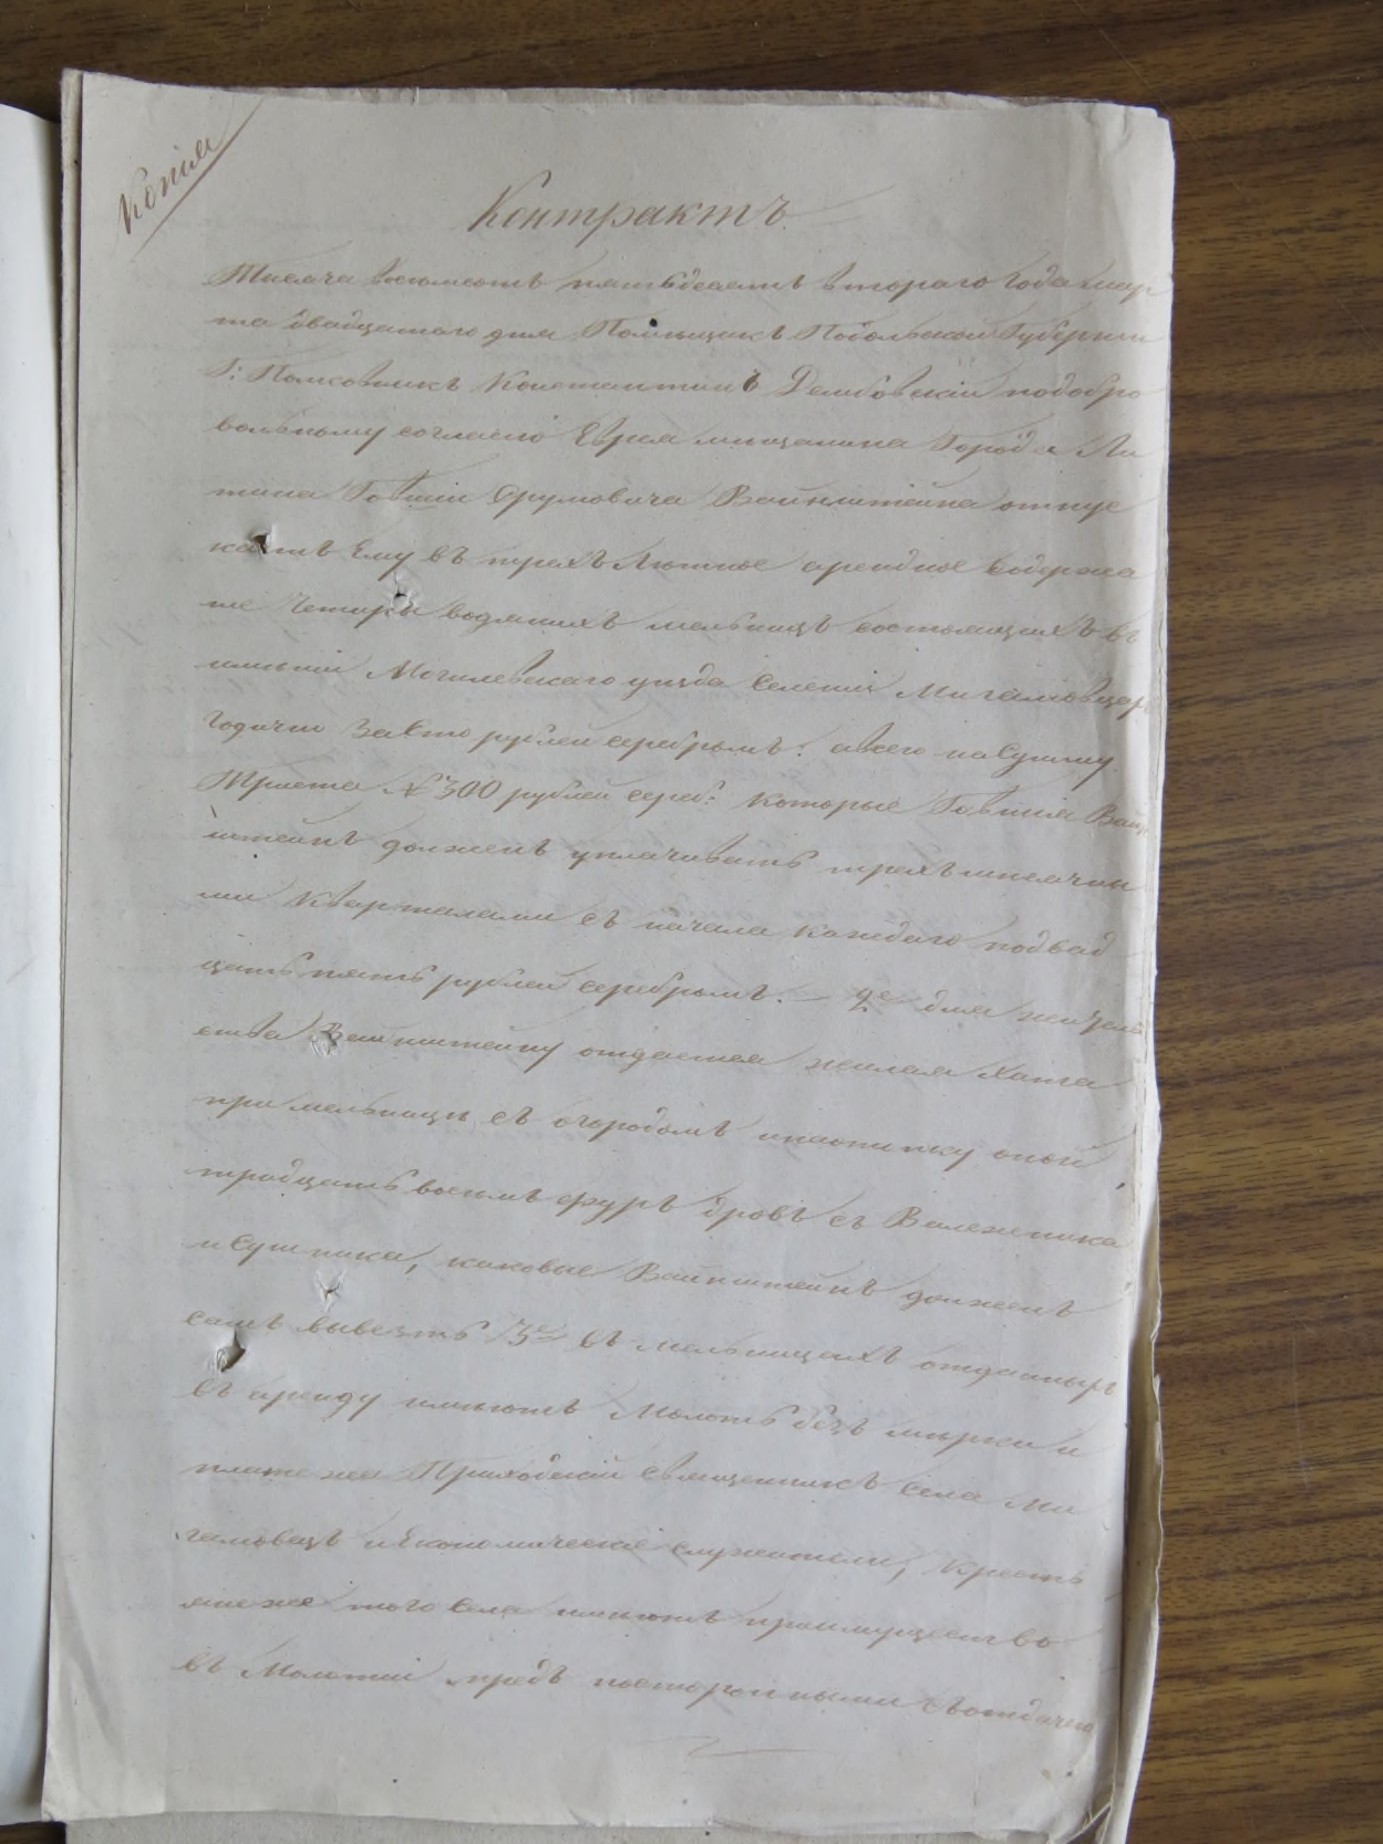 Копія
Контрактъ.
Тисяча восемьсотъ пятьдесятъ втораго года Мар
та двадцатого дня Помѣщикъ Подольской Губерніи
Г: Полковникъ Константинъ Дембовскій подобро
вольному согласію Еврея мѣщанина Города Ли
тина Говшіи Срумовича Вайнштейна отпус
каетъ Ему въ трехъ лѣтное арендное Содержа
ніе Четыри водяныхъ мельницъ состоящихъ въ
имѣніи Могилевскаго уѣзда Селеніи Мигаловцахъ
Годично За Сто рублей серебромъ: авсего на Сумму
Триста № 300 рублей сереб: Которые Говшія Вайн
штейнъ долженъ уплачивать трехъ мѣсячны
ми Кварталами съ начала каждаго подвад
цать пять рублей Серебромъ. — 2е для жител
ства Вайнштейну отдается жилая Хата
при мельницы съ огородомъ инаопалку оной
тридцать восемъ фуръ дровъ съ Валежника
и Сушника, каковые Вайнштейнъ долженъ
самъ вывезть 3е Въ мельницахъ отданныхъ
въ аренду имѣютъ Молоть безъ мѣрки и
платежа Приходскій священникъ Села Ми
галовецъ и Економическіе служители, Кресть
яне же того Села имѣютъ преимущество
въ Молотіи предъ посторонными съотдачею